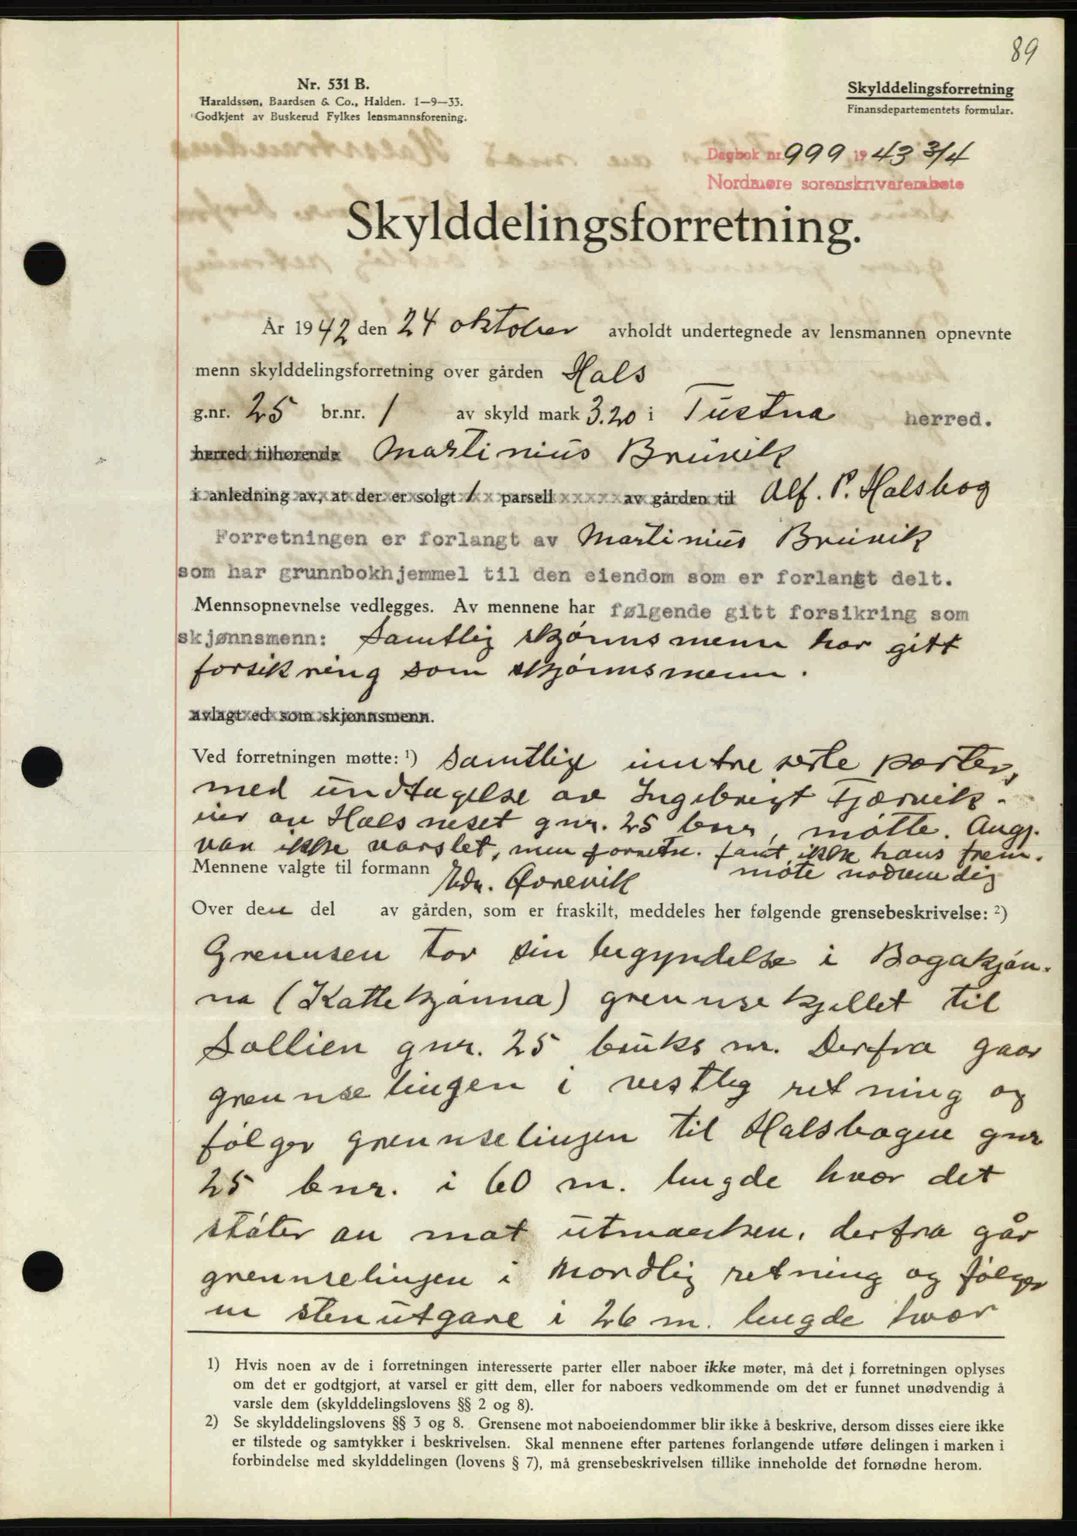 89
Nr. 531 B.
Haraldssøn, Baardsen & Co., Halden. 1—9—33.
Godkjent av Buskerud Fylkes lensmannsforening.
Skylddelingsforretning
Finansdepartementets formular.
Dagbok nr. 999 1943 3/4
Nordmøre sorenskriverembete
Skylddelingsforretning.
År 1942 den 24 oktober avholdt undertegnede av lensmannen opnevnte
menn skylddelingsforretning over gården Hals
g.nr. 25 br.nr. 1 av skyld mark 3.20 i Tustna herred.
herred tilhørende Martinius Brunvik
i anledning av, at der er solgt 1 parsell av gården til Alf. P. Halsbog
Forretningen er forlangt av Martinius Brunvik
som har grunnbokhjemmel til den eiendom som er forlangt delt.
Mennsopnevnelse vedlegges. Av mennene har følgende gitt forsikring som
skjønnsmenn: Samtlig skjønnsmenn har gitt
forsikring som skjønnsmenn.
avlagt ed som skjønnsmenn.
Ved forretningen møtte: ¹) Samtlige inntreserte parter,
med undtagelse av Ingebrigt Tjærvik.
eier av Halsneset gnr. 25 bnr, møtte. Angj.
van ikke varslet, men forretn. fant ikke hans frem.
møte nødvendig
Mennene valgte til formann Edv. Ørnevik
Over den del av gården, som er fraskilt, meddeles her følgende grensebeskrivelse: ²)
Grennsen tar sin begyndelse i Bogakjøn.
na (Kattekjønna) grennsekjellet til
Sollien gnr. 25 bruks nr. Derfra gaar
grennselingen i vestlig retning og
følger grennselingen til Halsbogen gnr
25 bnr. i 60 m. lengde hvor det
støter an mot utmarken, derfra går
grennselingen i nordlig retning og følger
en stenutgare i 26 m. lengde hvor
1) Hvis noen av de i forretningen interesserte parter eller naboer ikke møter, må det i forretningen oplyses
om det er godtgjort, at varsel er gitt dem, eller for naboers vedkommende om det er funnet unødvendig å
varsle dem (skylddelingslovens §§ 2 og 8).
2) Se skylddelingslovens §§ 3 og 8. Grensene mot naboeiendommer blir ikke å beskrive, dersom disses eiere ikke
er tilstede og samtykker i beskrivelsen. Skal mennene efter partenes forlangende utføre delingen i marken i
forbindelse med skylddelingen (lovens § 7), må grensebeskrivelsen tillike inneholde det fornødne herom.